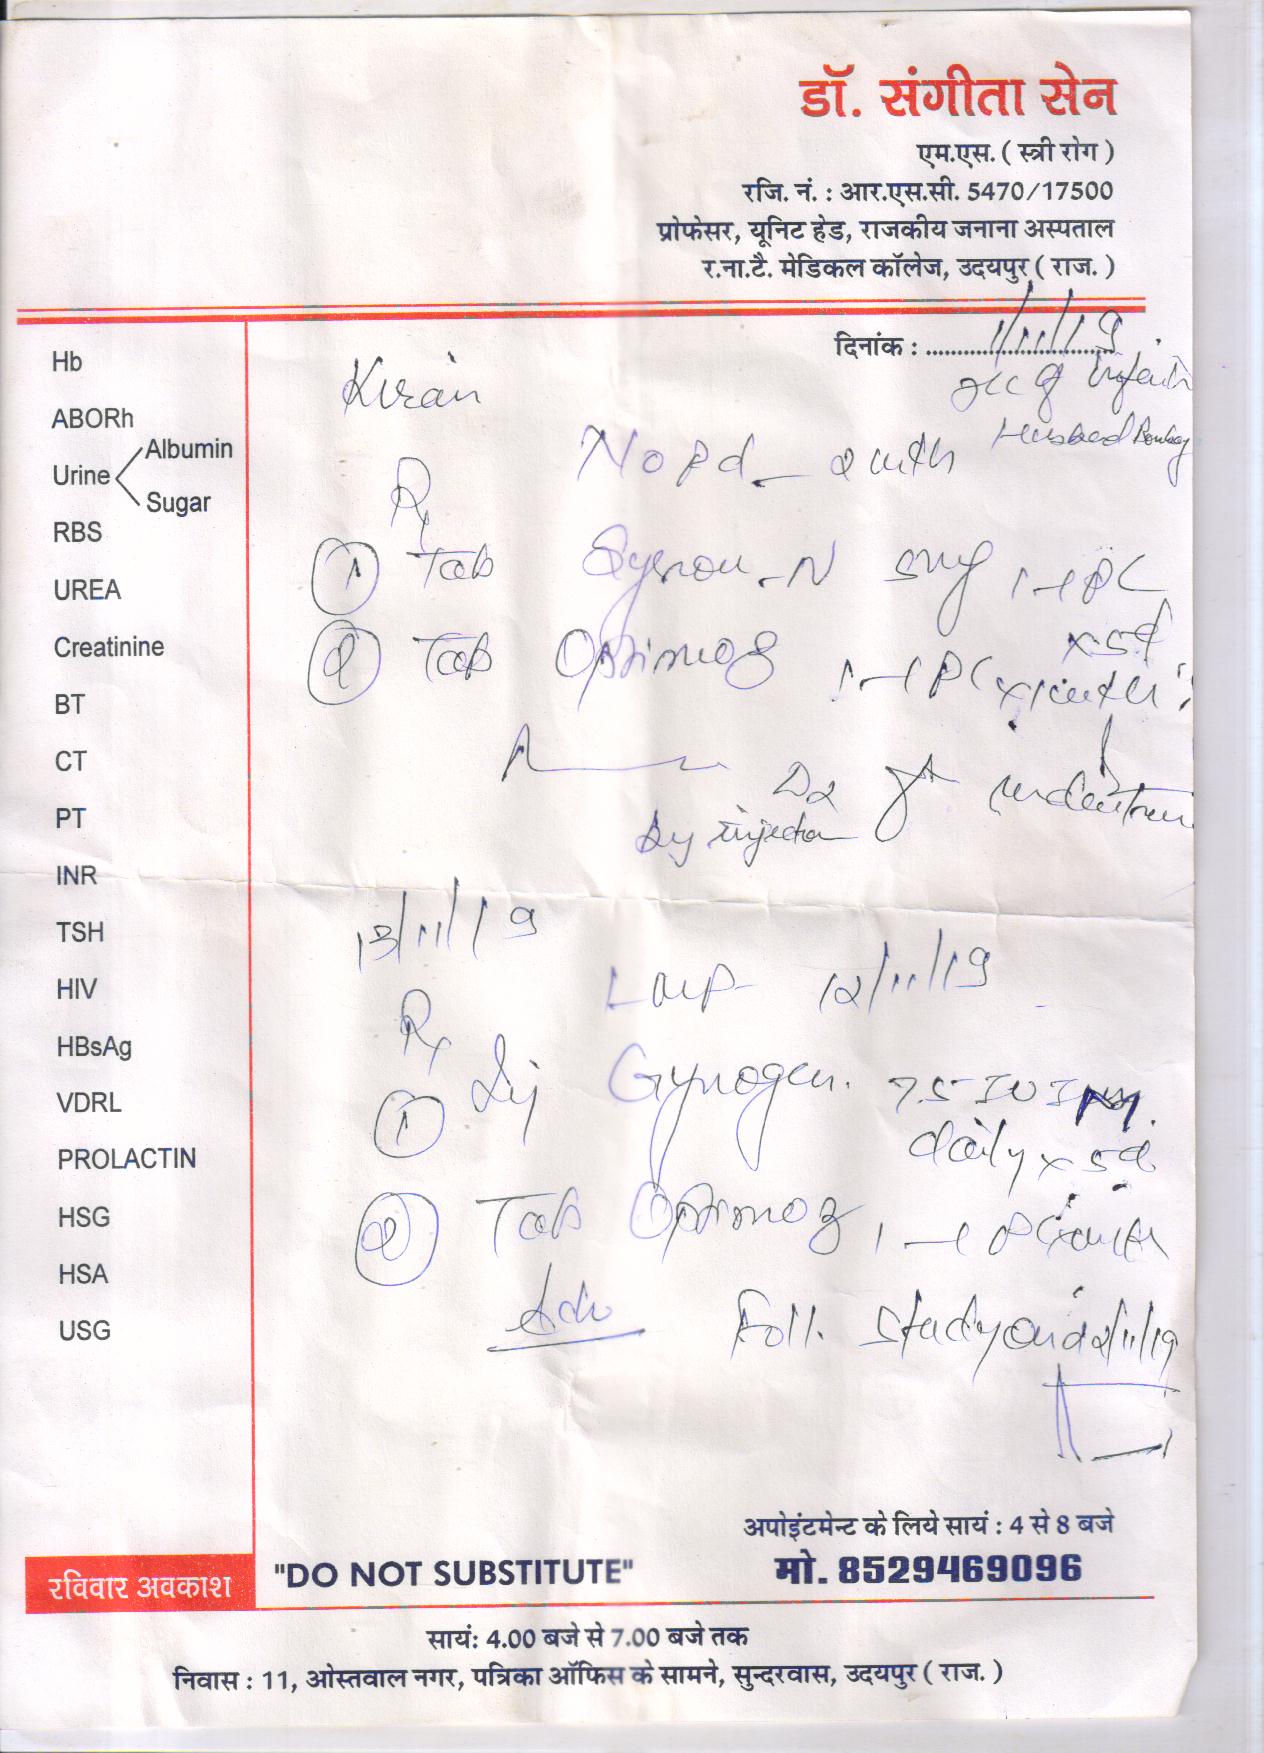 डॉ. संगीता सेन
एम.एस. ( स्त्री रोग )
रजि. नं. : आर.एस.सी. 5470/17500
प्रोफेसर, यूनिट हेड, राजकीय जनाना अस्पताल
र.ना.टै. मेडिकल कॉलेज, उदयपुर ( राज. )
दिनांक : 1/11/19
Hb
ABORh
Urine
Albumin
Sugar
RBS
UREA
Creatinine
BT
CT
PT
INR
TSH
HIV
HBsAg
VDRL
PROLACTIN
HSG
HSA
USG
Kiran
Husband
No Pd
Rx
① Tab 5mg
x 5d
② Tab
by injection
13/11/19
LMP 12/11/19
Rx
① Inj Gynogen. 75 IU IM.
daily x 5d
② Tab
Adv Foll. Study on 22/11/19
अपोइंटमेन्ट के लिये सायं : 4 से 8 बजे
रविवार अवकाश
"DO NOT SUBSTITUTE"
मो. 8529469096
सायं: 4.00 बजे से 7.00 बजे तक
निवास : 11, ओस्तवाल नगर, पत्रिका ऑफिस के सामने, सुन्दरवास, उदयपुर ( राज. )